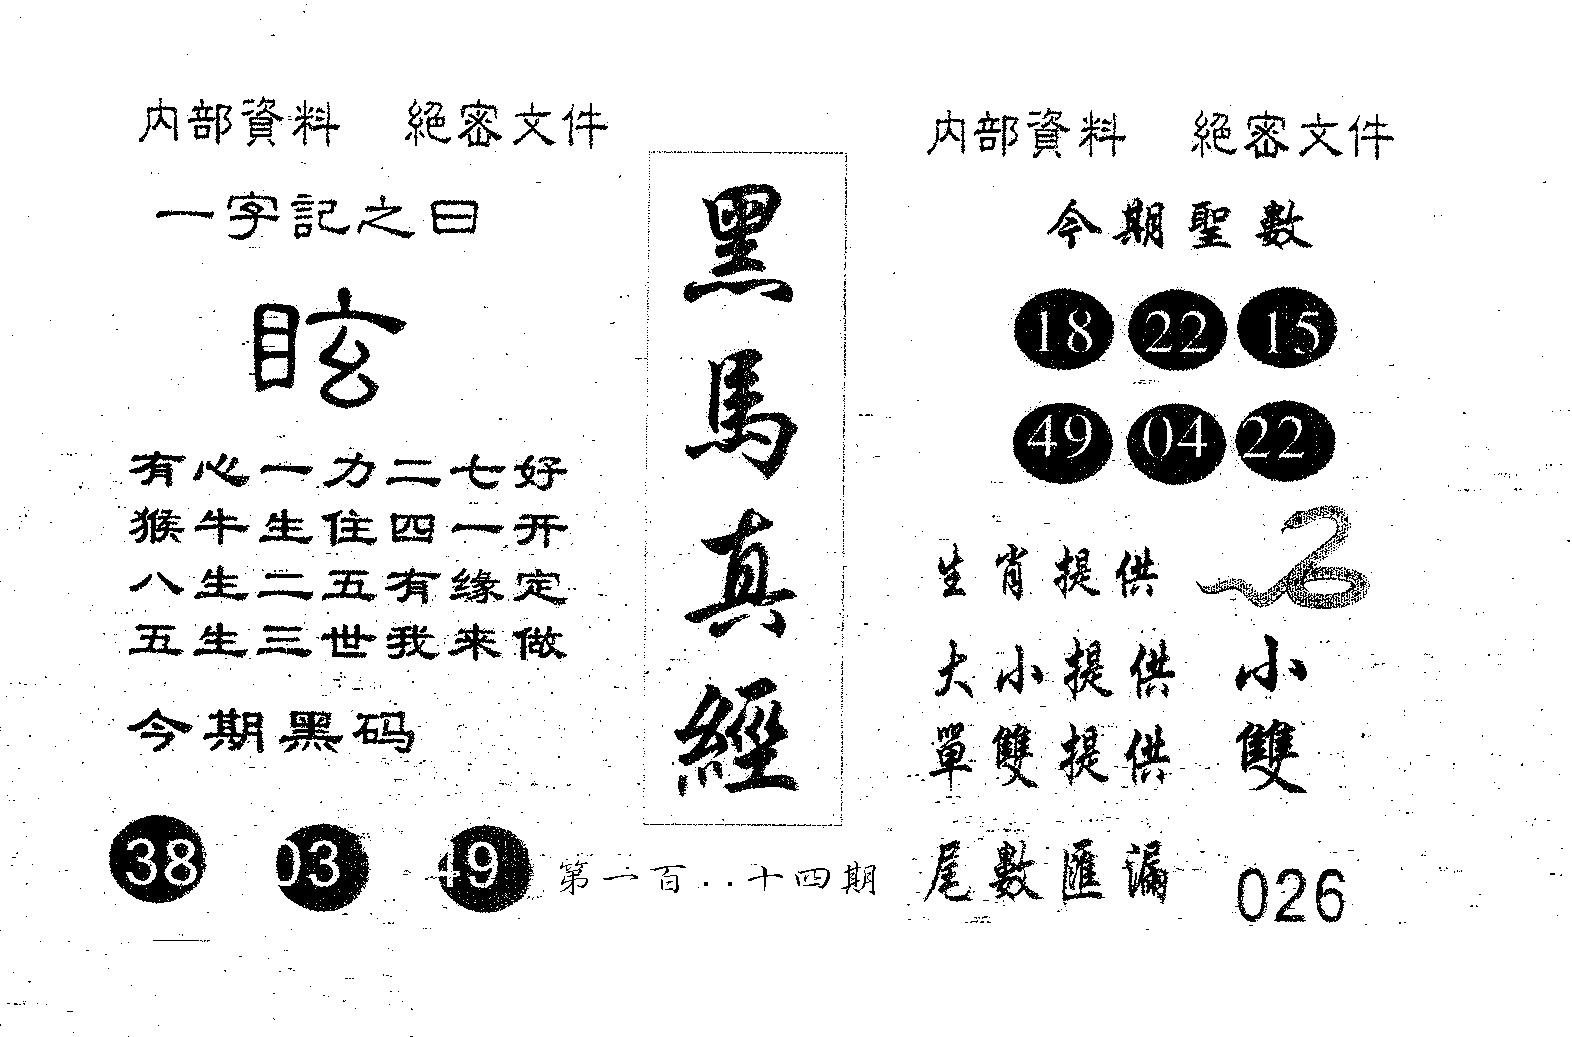 内部資料　絕密文件
一字記之曰
眩
有心一力二七好
猴牛生住四一开
八生二五有缘定
五生三世我来做
今期黑码
38 03 49
黑馬真經
第一百..十四期
内部資料　絕密文件
今期聖數
18 22 15
49 04 22
生肖提供
大小提供 小
單雙提供 雙
尾數匯漏 026